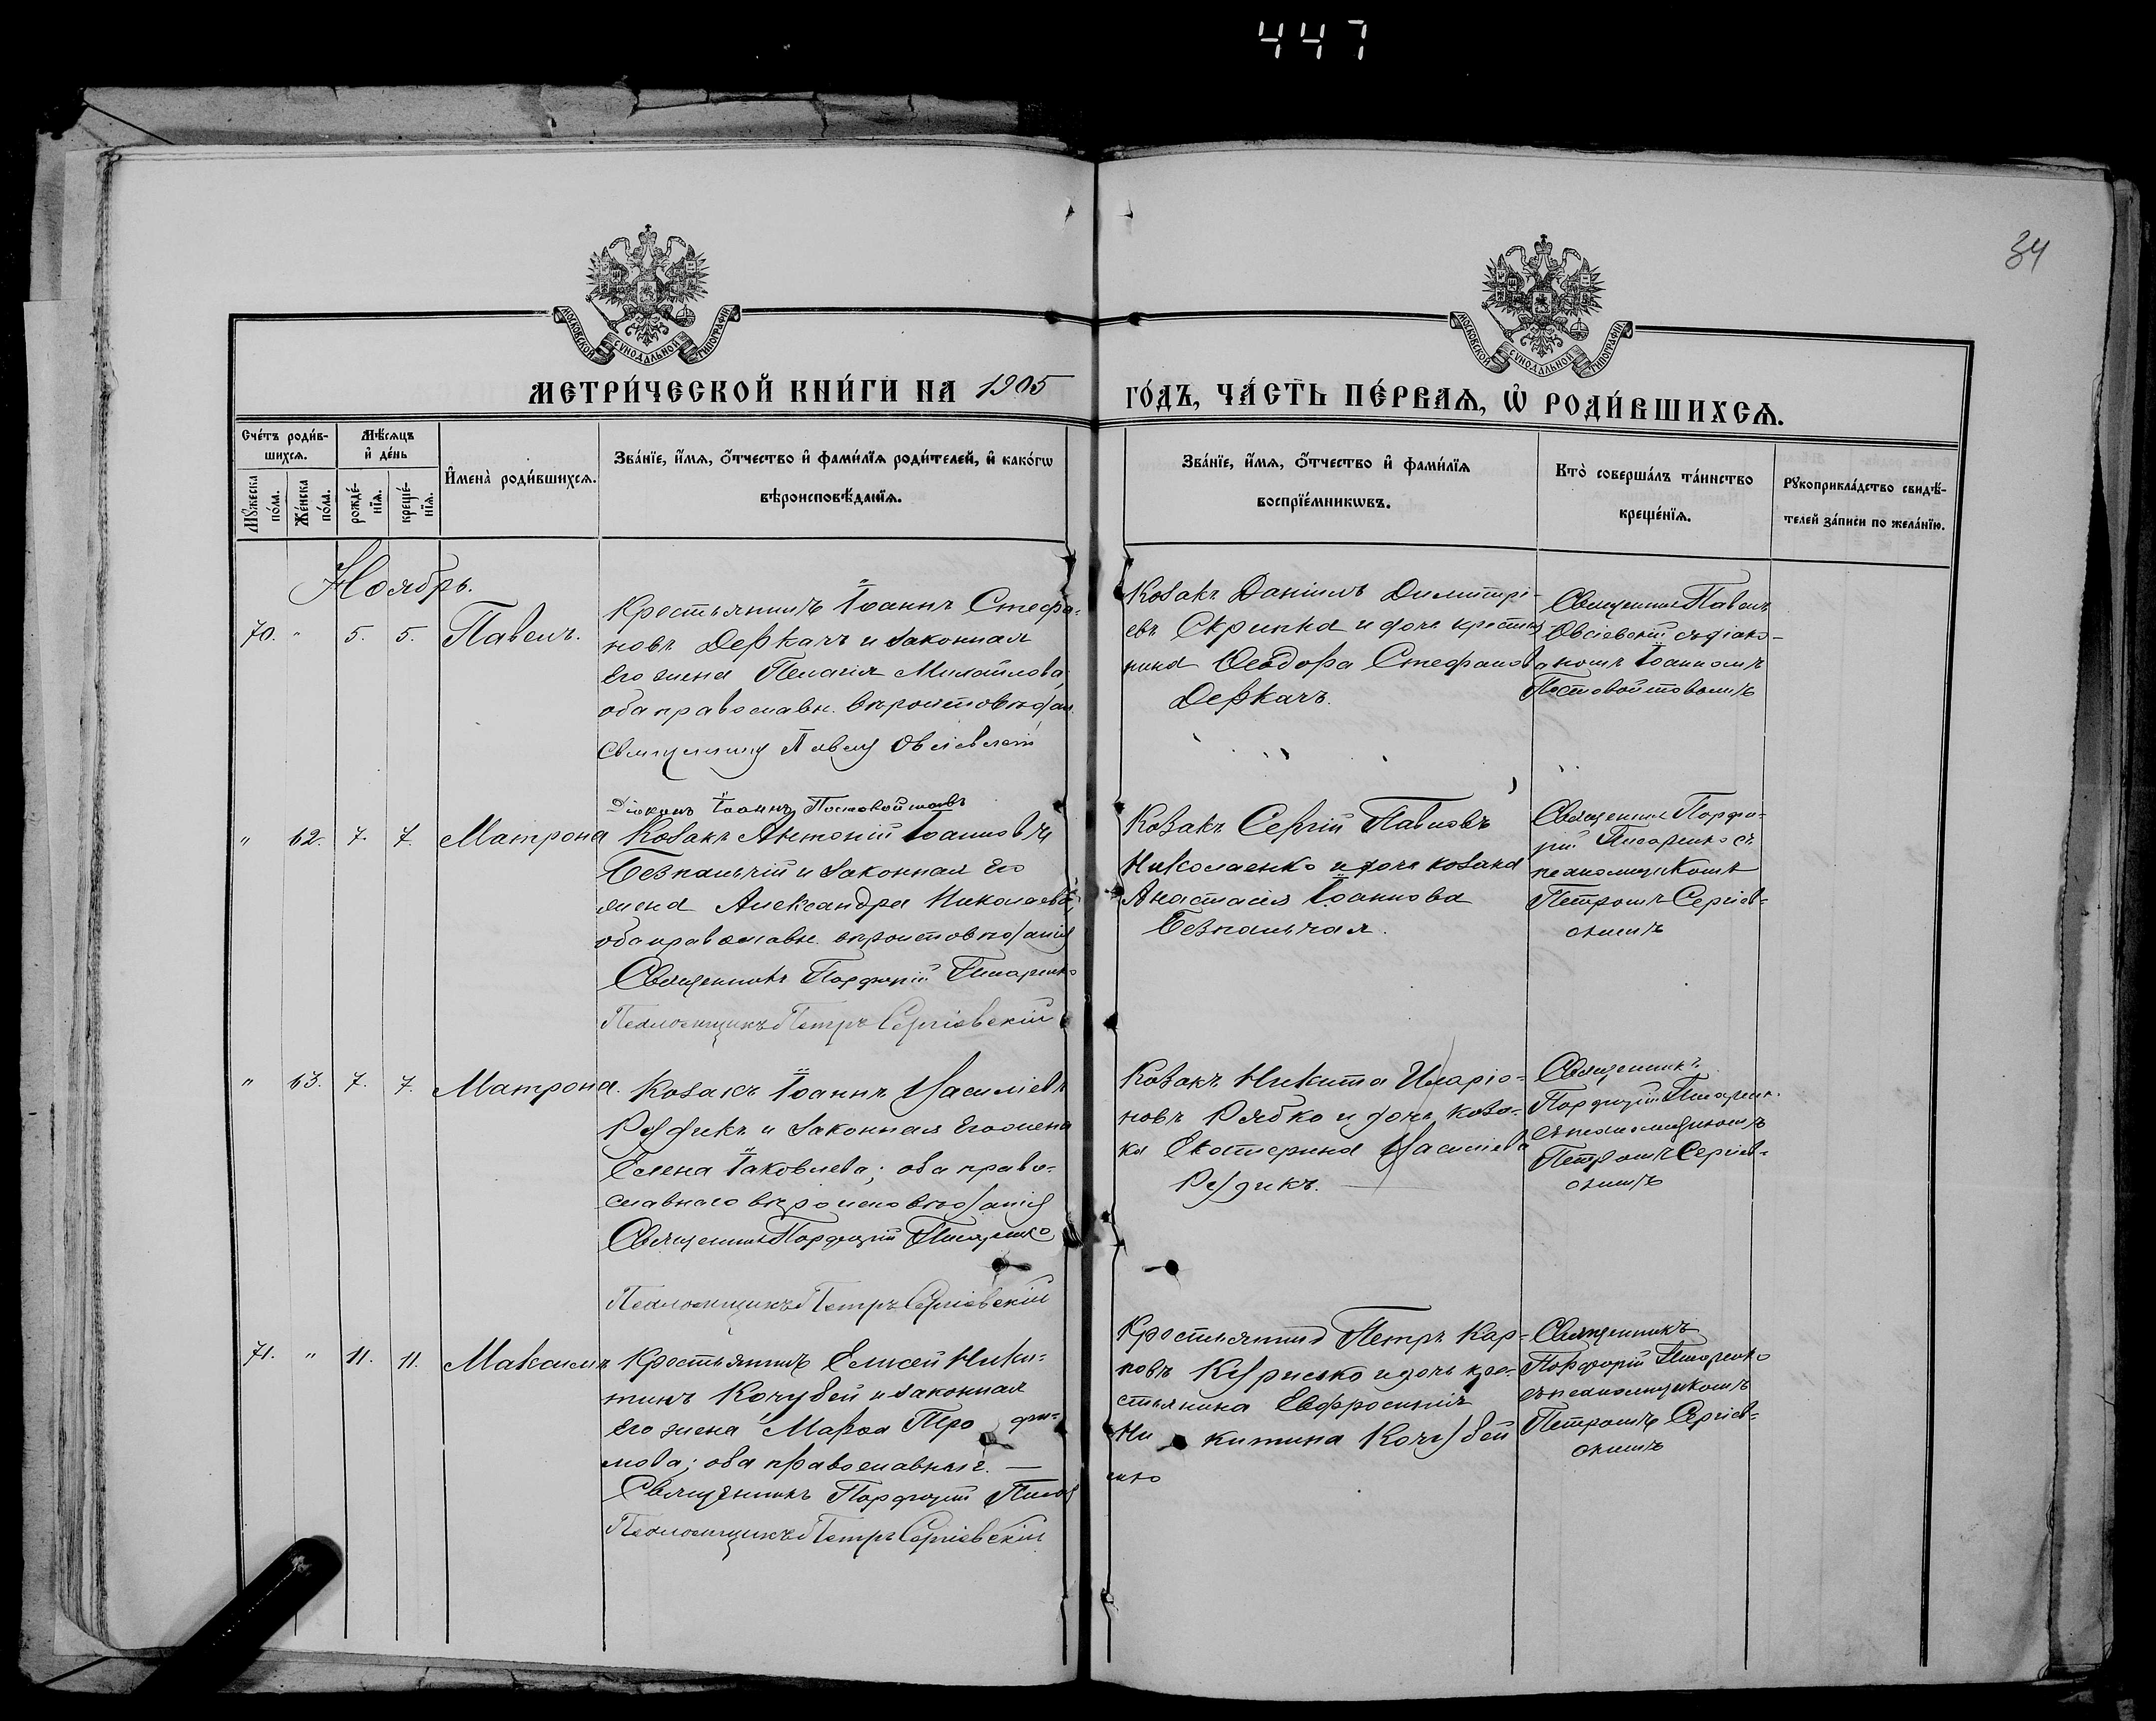 447
34
МОСКОВСКОЙ СѴНОДАЛЬНОЙ ТИПОГРАФІИ
МОСКОВСКОЙ СѴНОДАЛЬНОЙ ТИПОГРАФІИ
МЕТРИ́ЧЕСКОЙ КНИ́ГИ НА 1905
ГО́ДЪ, ЧА́СТЬ ПЕ́РВАѦ, Ѡ҆ РОДИ́ВШИХСѦ.
Сче́тъ роди́в-
шихсѧ.
Мꙋ́жеска по́ла.
Же́нска по́ла.
Мѣ́сѧцъ
и҆ де́нь
рожде́-
нїѧ.
креще́-
нїѧ.
И҆мена̀ роди́вшихсѧ.
Зва́нїе, и҆́мѧ, ѻ҆́тчество и҆ фами́лїѧ роди́телей, и҆ како́гѡ
вѣроисповѣ́данїѧ.
Зва́нїе, и҆́мѧ, ѻ҆́тчество и҆ фами́лїѧ
воспрїе́мникѡвъ.
Кто̀ соверша́лъ та́инство
креще́нїѧ.
Рꙋкоприкла́дство свидѣ́-
телей за́писи по жела́нїю.
Ноябрь.
70. " 5. 5. Павелъ.
Крестьянинъ Іоаннъ Стефа-
новъ Деркачъ и законная
его жена Пелагія Михайлова,
оба православн. вѣроисповѣдан.
Священникъ Павелъ Овсіевскій
Діаконъ Іоаннъ Постовойтовъ
Козакъ Даніилъ Димитрі-
евъ Скрипка и дочь крестья
нина Ѳеодора Стефанова
Деркачъ.
Священникъ Павелъ
Овсіевскій съ діако-
номъ Іоанномъ
Постовойтовымъ
" 62. 7. 7. Матрона
Козакъ Антоній Іоанновъ
Безпальчій и законная его
жена Александра Николаева,
оба православн. вѣроисповѣданія
Священникъ Порфирій Писаренко
Псаломщикъ Петръ Сергіевскій
Козакъ Сергій Павловъ
Николаенко и дочь козака
Анастасія Іоаннова
Безпальчая.
Священникъ Порфи-
рій Писаренко съ
псаломщикомъ
Петромъ Сергіев-
скимъ
" 63. 7. 7. Матрона.
Козакъ Іоаннъ Василіевъ
Рудикъ и законная его жена
Елена Іаковлева; оба право-
славнаго вѣроисповѣданія
Священникъ Порфирій Писаренко
Псаломщикъ Петръ Сергіевскій
Козакъ Никита Иларіо-
новъ Рябко и дочь коза-
ка Екатерина Василіева
Рудикъ.
Священникъ
Порфирій Писаренк.
съ псаломщикомъ
Петромъ Сергіев-
скимъ
71. " 11. 11. Максимъ
Крестьянинъ Елисей Ники-
тинъ Кочубей и законная
его жена Марѳа Тро фи-
мова; оба православные. —
Священникъ Порфирій
Псаломщикъ Петръ Сергіевскій
Крестьянинъ Петръ Кар-
повъ и дочь кре-
стьянина Евфросинія
Ни китина Кочубей
Священникъ
Порфирій Писаренко
съ псаломщикомъ
Петромъ Сергіев-
скимъ